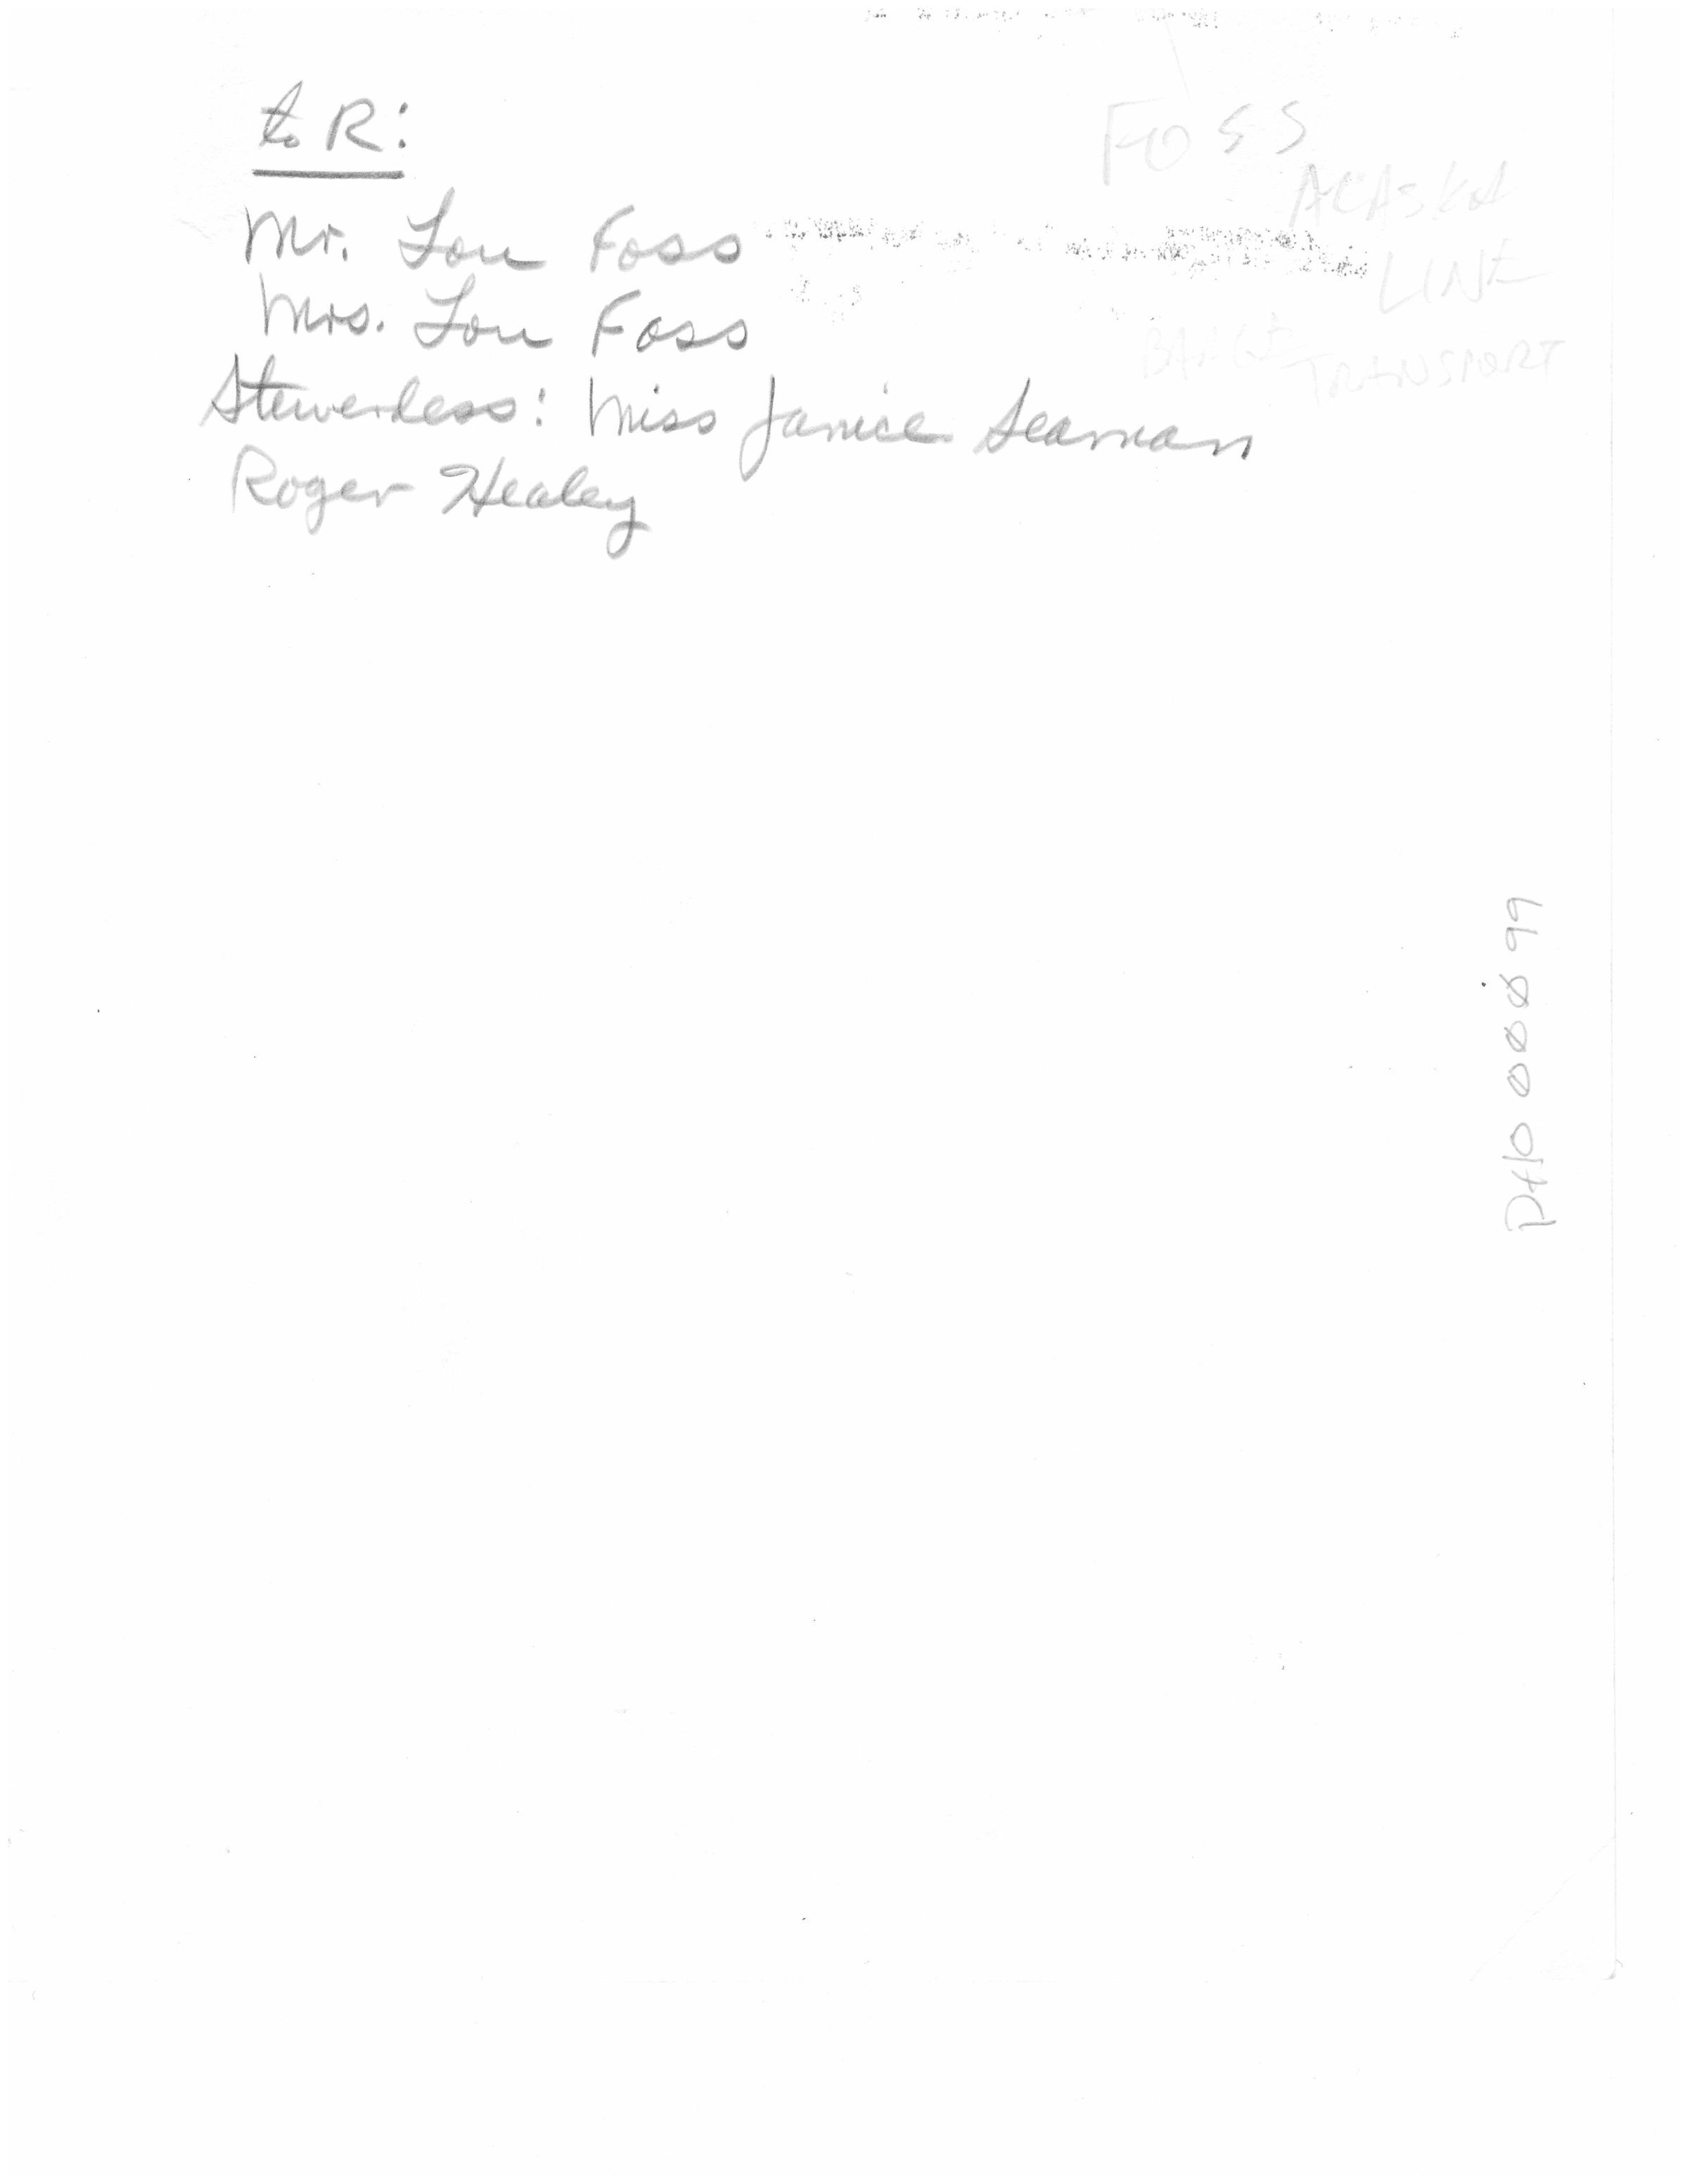 to R:
Mr. Lou Foss
Mrs. Lou Foss
Stewerdess: Miss Janice Seaman
Roger Healey
FOSS
ALASKA
LINE
BARGE TRANSPORT
PHO 000099